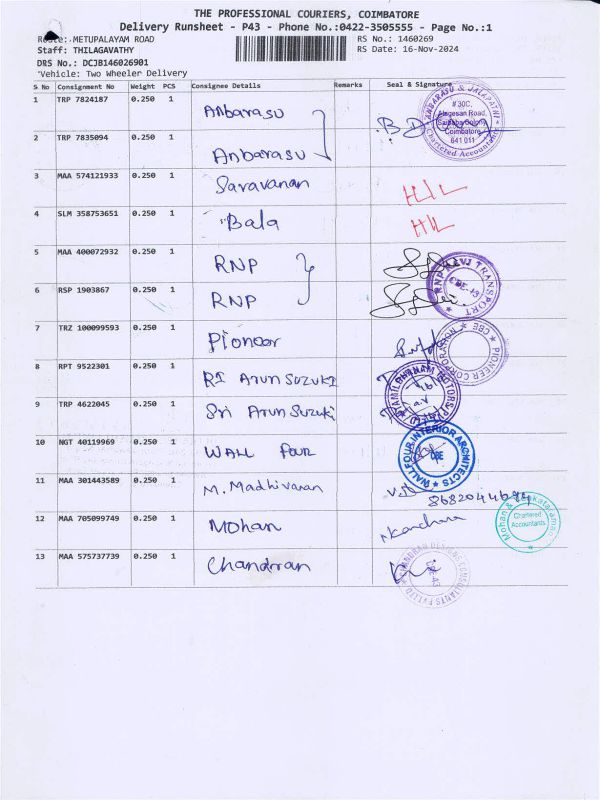 THE PROFESSIONAL COURIERS, COIMBATORE
Delivery Runsheet - P43 - Phone No.:0422-3505555 - Page No.:1
Route: METUPALAYAM ROAD RS No.: 1460269
Staff: THILAGAVATHY RS Date: 16-Nov-2024
DRS No.: DCJB146026901
Vehicle: Two Wheeler Delivery
S No Consignment No Weight PCS Consignee Details Remarks Seal & Signature
1 TRP 7824187 0.250 1 Anbarasu
ANBARASU & JALAPATHI
# 30C,
Alagesan Road,
Saibaba Colony,
Coimbatore
641 011
Chartered Accountants
2 TRP 7835094 0.250 1 Anbarasu
3 MAA 574121933 0.250 1 Saravanan H/L
4 SLM 358753651 0.250 1 Bala H/L
5 MAA 400072932 0.250 1 RNP
RNP RAVJ TRANSPORT
CBE-43
6 RSP 1903867 0.250 1 RNP
7 TRZ 100099593 0.250 1 Pioneer
PIONEER CORPORATION
CBE
8 RPT 9522301 0.250 1 RI Arun SUZUKI
9 TRP 4622045 0.250 1 Sri Arun Suzuki
10 NGT 40119969 0.250 1 WALL FOUR
WALL FOUR INTERIOR ARCHITECTS
CBE
11 MAA 301443589 0.250 1 M. Madhivanan
12 MAA 705099749 0.250 1 Mohan
Mohan & Venkataraman
Chartered
Accountants
13 MAA 575737739 0.250 1 Chandran